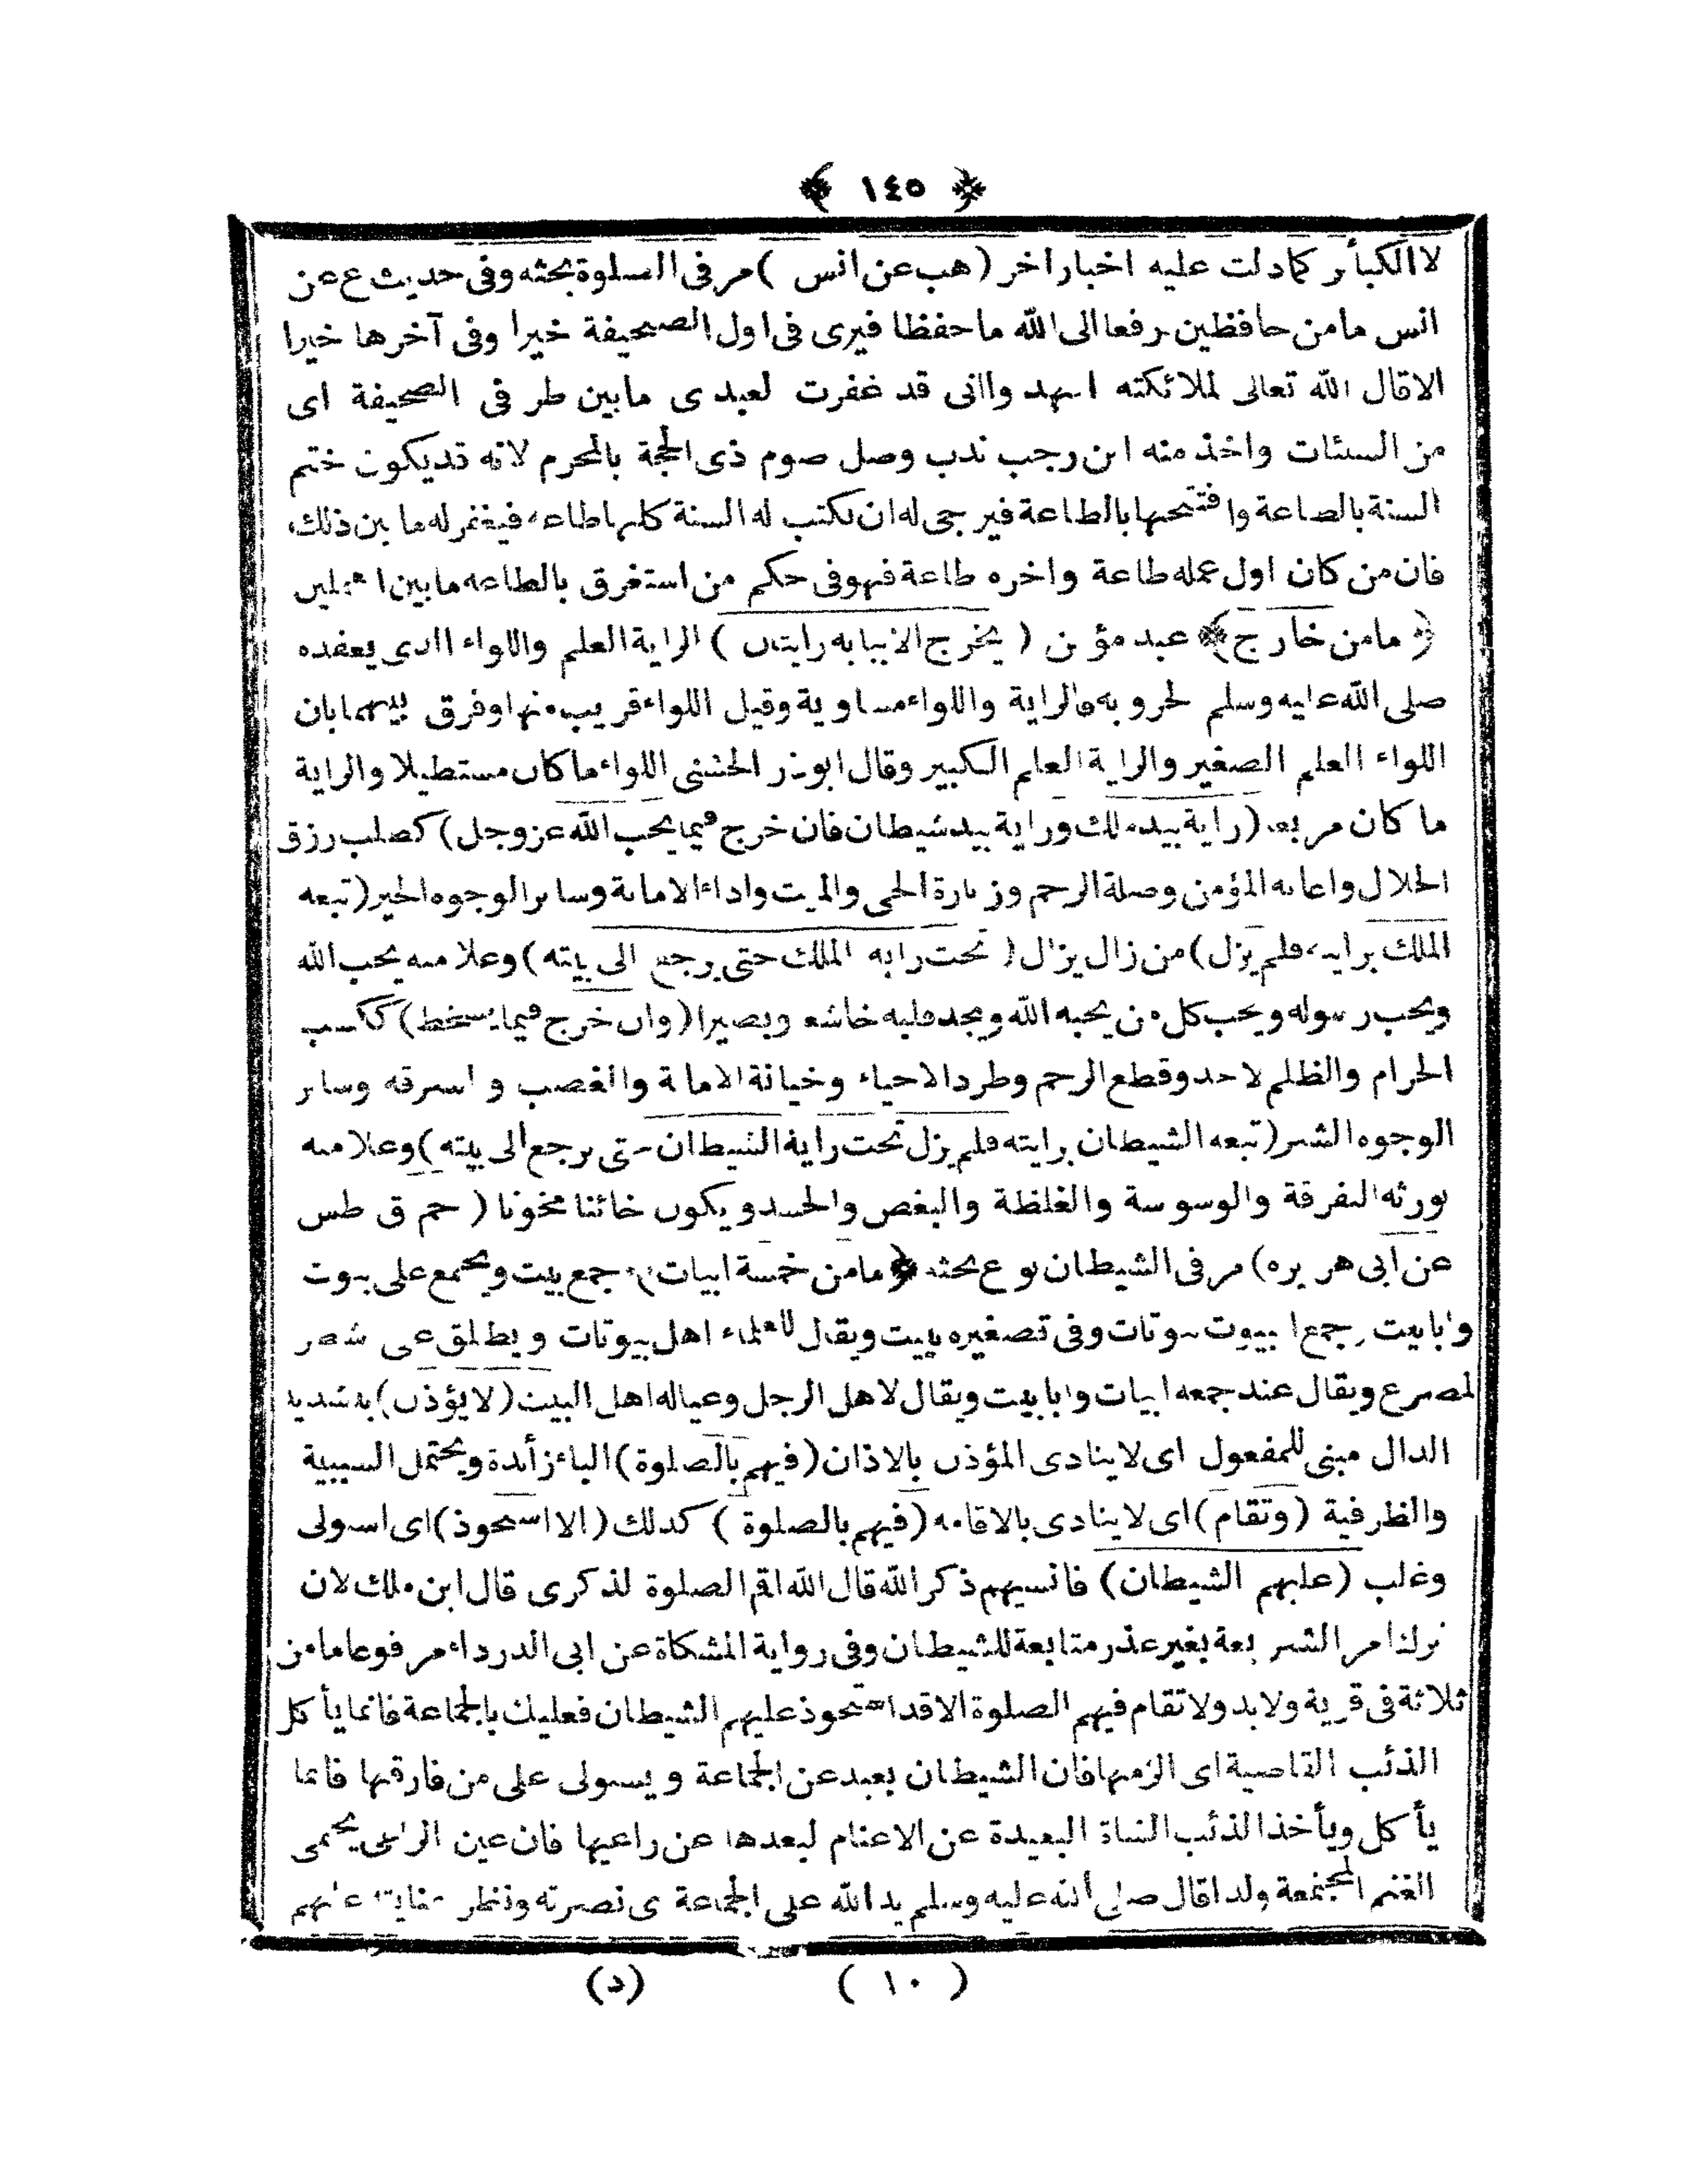 ﴿ ١٤٥ ﴾
لا الكبأر كما دلت عليه اخبار اخر (هب عن انس ) مر فى الصلوة بحثه وفى حديث ع عن
انس مامن حافظين رفعا الى الله ما حفظا فيرى فى اول الصحيفة خيرا وفى آخرها خيرا
الاقال الله تعالى لملائكته اشهدوا انى قد غفرت لعبدى مابين طرفى الصحيفة اى
من السئات واخذ منه ابن رجب ندب وصل صوم ذى الحجة بالمحرم لانه قديكون ختم
السنة بالطاعة وافتتحها بالطاعة فيرجى له ان تكتب له السنة كلها طاعة فيغفر له ما بين ذلك
فان من كان اول عمله طاعة واخره طاعة فهو فى حكم من استغرق بالطاعة مابين العملين
﴿ مامن خارج ﴾ عبد مؤمن ( يخرج الا ببابه رايتان ) الراية العلم واللواء الذى يعقده
صلى الله عليه وسلم لحروبه فالراية واللواء مساوية وقيل اللواء قريب منها وفرق بينهما بان
اللواء العلم الصغير والراية العلم الكبير وقال ابوذر الخشنى اللواء ما كان مستطيلا والراية
ما كان مربعا (راية بيد ملك وراية بيد شيطان فان خرج فيما يحب الله عز وجل) كطلب رزق
الحلال واعانه المؤمن وصلة الرحم وزيارة الحى والميت واداء الامانة وسائر الوجوه الخير (تبعه
الملك برايته فلم يزل) من زال يزال ( تحت رايه الملك حتى يرجع الى بيته ) وعلامته يحب الله
ويحب رسوله ويحب كل من يحبه الله ويجد قلبه خاشعا وبصيرا (وان خرج فيما يسخط) ككسب
الحرام والظلم لاحد وقطع الرحم وطرد الاحياء وخيانة الامانة والغصب والسرقه وسائر
الوجوه الشر (تبعه الشيطان برايته فلم يزل تحت راية الشيطان حتى يرجع الى بيته ) وعلامته
يورثه التفرقة والوسوسة والغلظة والبغض والحسد ويكون خائنا مخونا ( حم ق طس
عن ابى هريره) مر فى الشيطان نوع بحثه ﴿ مامن خمسة ابيات ﴾ جمع بيت ويجمع على بيوت
وابابيت وجمع ابيوت بيوتات وفى تصغيره بييت ويقال للعلماء اهل بيوتات ويطلق على شعر
لمصرع ويقال عند جمعه ابيات وابابيت ويقال لاهل الرجل وعياله اهل البيت (لايؤذن) بتشديد
الدال مبنى للمفعول اى لاينادى المؤذن بالاذان (فيهم بالصلوة) الباء زأئدة ويحتمل السببية
والظرفية (وتقام) اى لاينادى بالاقامه (فيهم بالصلوة ) كذلك (الا استحوذ) اى استولى
وغلب (عليهم الشيطان) فانسيهم ذكر الله قال الله اقم الصلوة لذكرى قال ابن ملك لان
ترك امر الشريعة بغير عذر متابعة للشيطان وفى رواية المشكاة عن ابى الدرداء مرفوعا مامن
ثلاثة فى قرية ولابد ولاتقام فيهم الصلوة الا قد استحوذ عليهم الشيطان فعليك بالجماعة فانما يأكل
الذئب القاصية اى الزمها فان الشيطان بعيد عن الجماعة ويستولى على من فارقها فانما
يأكل ويأخذ الذئب الشاة البعيدة عن الاغنام لبعدها عن راعيها فان عين الراعى يحمى
الغنم المجتمعة ولذا قال صلى الله عليه وسلم يد الله على الجماعة اى نصرته ونظر عنايته عليهم
( ١٠ ) (د)